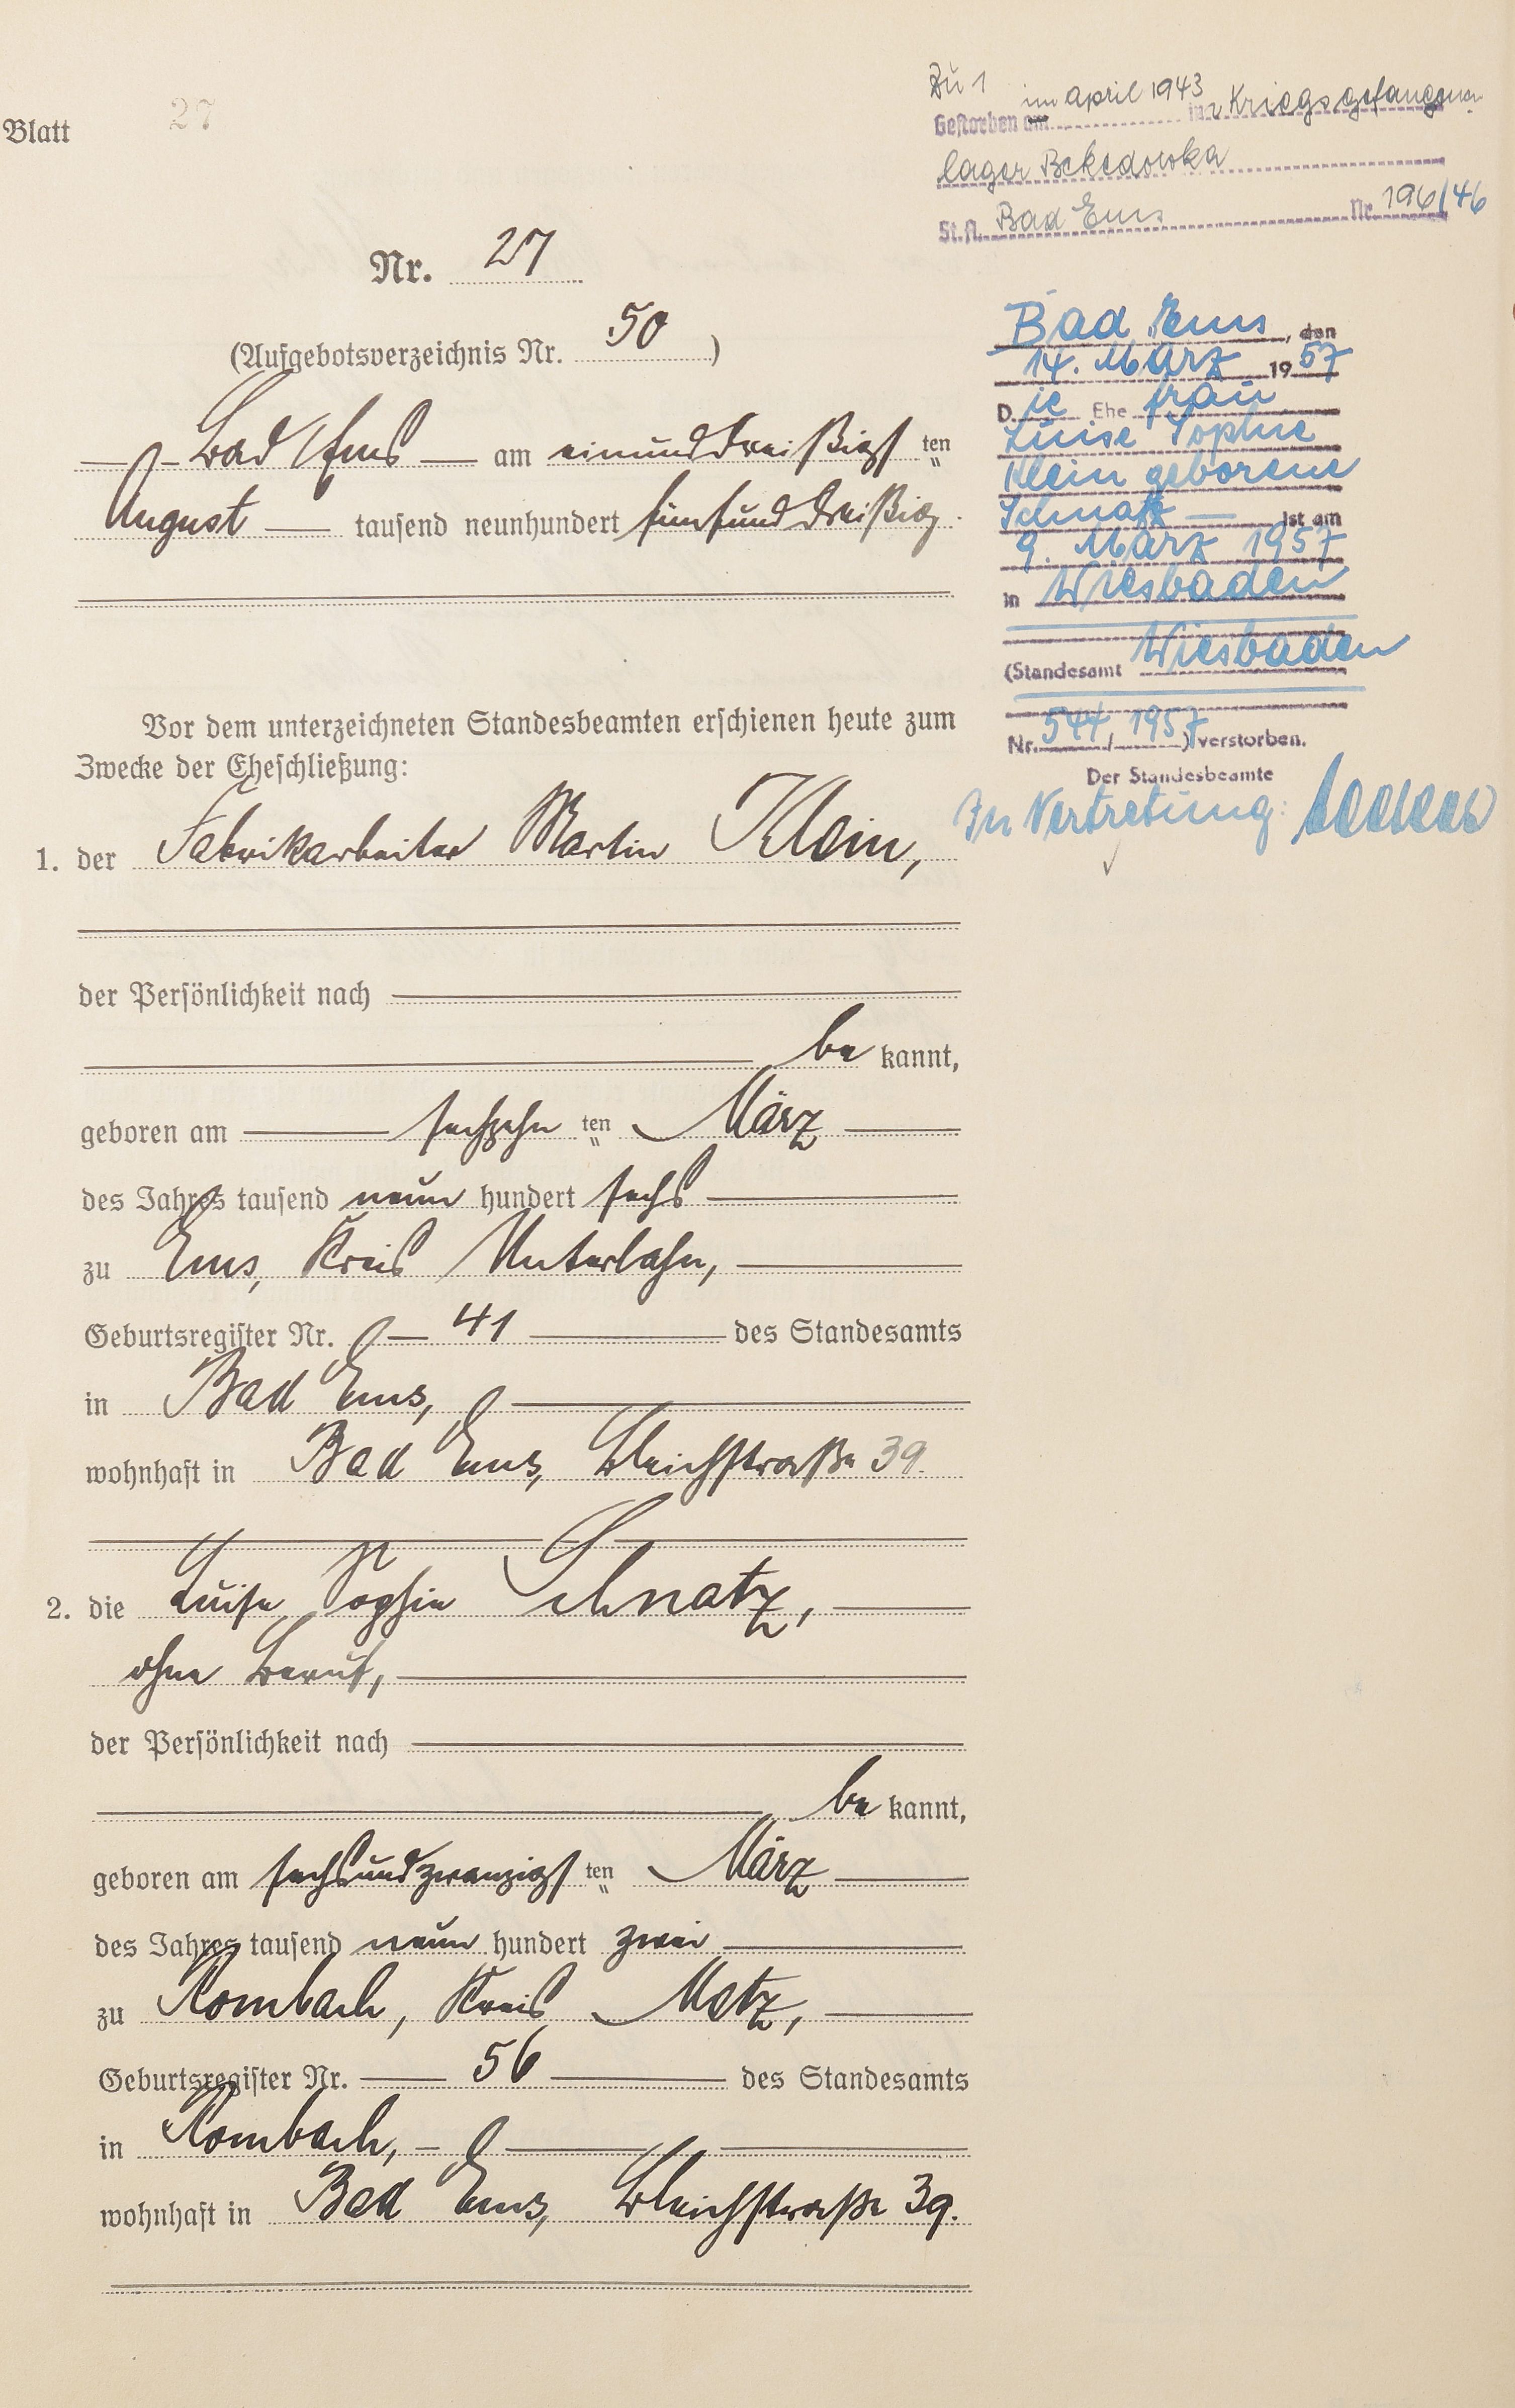 Blatt 27
Nr. 27
(Aufgebotsverzeichnis Nr. 50)
Bad Ems am einunddreißigsten
August tausend neunhundert fünfunddreißig.
Vor dem unterzeichneten Standesbeamten erschienen heute zum
Zwecke der Eheschließung:
1. der Fabrikarbeiter Martin Klein,
der Persönlichkeit nach
be kannt,
geboren am sechzehn ten März
des Jahres tausend neun hundert sechs
zu Ems, Kreis Unterlahn,
Geburtsregister Nr. 41 des Standesamts
in Bad Ems,
wohnhaft in Bad Ems, Bleichstraße 39.
2. die Luise Sophie Schnatz,
ohne Beruf,
der Persönlichkeit nach
be kannt,
geboren am sechsundzwanzigs ten März
des Jahres tausend neun hundert zwei
zu Rombach, Kreis Metz,
Geburtsregister Nr. 56 des Standesamts
in Rombach,
wohnhaft in Bad Ems, Bleichstraße 39.
Zu 1
Gestorben im April 1943 in Kriegsgefangenen
lager Beketowka
St.A. Bad Ems Nr. 196/46
Bad Ems, den
14. März 1957
Die Ehefrau
Luise Sophie
Klein geborene
Schnatz ist am
9. März 1957
in Wiesbaden
(Standesamt Wiesbaden
Nr. 544/1957) verstorben.
Der Standesbeamte
In Vertretung: